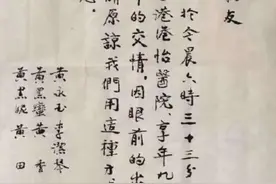 友
於今晨六時三十三分
港港怡醫院，享年九
的交情。因眼前的
原諒我們用這種方
黃永玉 李潔琴
黃黑蠻 黃香
黃黑妮 黃田